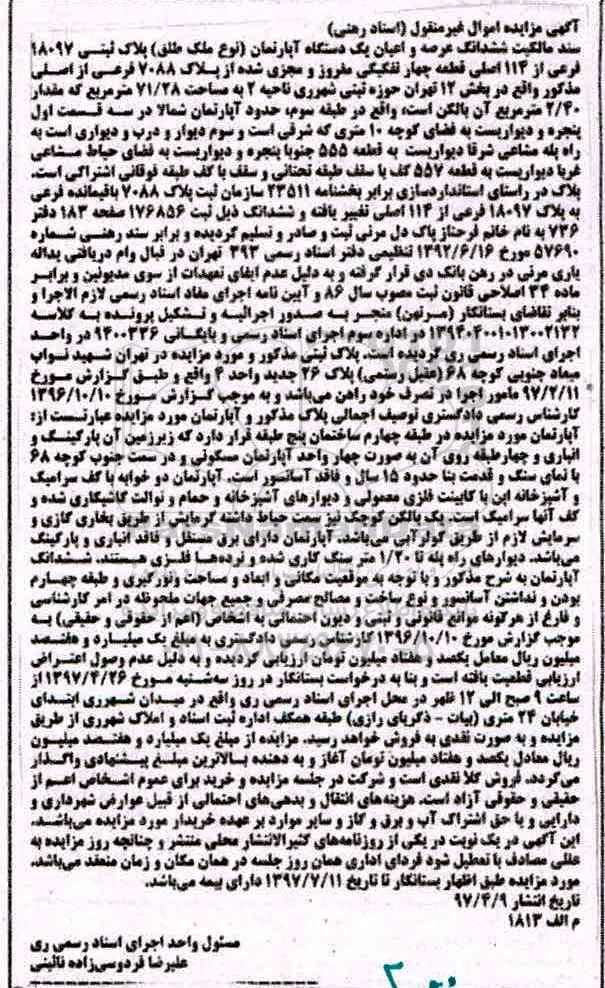 آگهی مزایده اموال غیرمنقول (اسناد رهنی)
سند مالکیت ششدانگ عرصه و اعیان یک دستگاه آپارتمان (نوع ملک طلق) پلاک ثبتی ۱۸۰۹۷
فرعی از ۱۱۴ اصلی قطعه چهار تفکیکی مفروز و مجزی شده از پلاک ۷۰۸۸ فرعی از اصلی
مذکور واقع در بخش ۱۲ تهران حوزه ثبتی شهرری ناحیه ۲ به مساحت ۷۱/۲۸ مترمربع که مقدار
۲/۴۰ مترمربع آن بالکن است، واقع در طبقه سوم، حدود آپارتمان شمالا در سه قسمت اول
پنجره و دیواریست به فضای کوچه ۱۰ متری که شرقی است و سوم دیوار و درب و دیواری است به
راه پله مشاعی شرقا دیواریست به قطعه ۵۵۵ جنوبا پنجره و دیواریست به فضای حیاط مشاعی
غربا دیواریست به قطعه ۵۵۷ کف با سقف طبقه تحتانی و سقف با کف طبقه فوقانی اشتراکی است.
پلاک در راستای استانداردسازی برابر بخشنامه ۲۳۵۱۱ سازمان ثبت پلاک ۷۰۸۸ باقیمانده فرعی
به پلاک ۱۸۰۹۷ فرعی از ۱۱۴ اصلی تغییر یافته و ششدانگ ذیل ثبت ۱۷۶۸۵۶ صفحه ۱۸۳ دفتر
۷۳۶ به نام خانم فرحناز پاک دل مرنی ثبت و صادر و تسلیم گردیده و برابر سند رهنی شماره
۵۷۶۹۰ مورخ ۱۳۹۲/۶/۱۶ تنظیمی دفتر اسناد رسمی ۳۹۳ تهران در قبال وام دریافتی یداله
یاری مرنی در رهن بانک دی قرار گرفته و به دلیل عدم ایفای تعهدات از سوی مدیونین و برابر
ماده ۳۴ اصلاحی قانون ثبت مصوب سال ۸۶ و آیین نامه اجرای مفاد اسناد رسمی لازم الاجرا و
بنابر تقاضای بستانکار (مرتهن) منجر به صدور اجرائیه و تشکیل پرونده به کلاسه
۱۳۹۴۰۴۰۰۱۰۱۳۰۰۲۱۳۲ در اداره سوم اجرای اسناد رسمی و بایگانی ۹۴۰۰۳۳۶ در واحد
اجرای اسناد رسمی ری گردیده است. پلاک ثبتی مذکور و مورد مزایده در تهران شهید نواب
میعاد جنوبی کوچه ۶۸ (عقیل رستمی) پلاک ۲۶ جدید واحد ۴ واقع و طبق گزارش مورخ
۹۷/۲/۱۱ مامور اجرا در تصرف خود راهن می‌باشد و به موجب گزارش مورخ ۱۳۹۶/۱۰/۱۰
کارشناس رسمی دادگستری توصیف اجمالی پلاک مذکور و آپارتمان مورد مزایده عبارتست از:
آپارتمان مورد مزایده در طبقه چهارم ساختمان پنج طبقه قرار دارد که زیرزمین آن پارکینگ و
انباری و چهارطبقه روی آن به صورت چهار واحد آپارتمان مسکونی و در سمت جنوب کوچه ۶۸
با نمای سنگ و قدمت بنا حدود ۱۵ سال و فاقد آسانسور است. آپارتمان دو خوابه با کف سرامیک
و آشپزخانه اپن با کابینت فلزی معمولی و دیوارهای آشپزخانه و حمام و توالت کاشیکاری شده و
کف آنها سرامیک است. یک بالکن کوچک نیز سمت حیاط داشته گرمایش از طریق بخاری گازی و
سرمایش لازم از طریق کولرآبی می‌باشد. آپارتمان دارای برق مستقل و فاقد انباری و پارکینگ
می‌باشد. دیوارهای راه پله تا ۱/۲۰ متر سنگ کاری شده و نرده‌ها فلزی هستند. ششدانگ
آپارتمان به شرح مذکور و با توجه به موقعیت مکانی و ابعاد و مساحت ونورگیری و طبقه چهارم
بودن و نداشتن آسانسور و نوع ساخت و مصالح مصرفی و جمیع جهات ملحوظه در امر کارشناسی
و فارغ از هرگونه موانع قانونی و ثبتی و دیون احتمالی به اشخاص (اعم از حقوقی و حقیقی) به
موجب گزارش مورخ ۱۳۹۶/۱۰/۱۰ کارشناس رسمی دادگستری به مبلغ یک میلیارد و هفتصد
میلیون ریال معادل یکصد و هفتاد میلیون تومان ارزیابی گردیده و به دلیل عدم وصول اعتراض
ارزیابی قطعیت یافته است و بنا به درخواست بستانکار در روز سه‌شنبه مورخ ۱۳۹۷/۴/۲۶ از
ساعت ۹ صبح الی ۱۲ ظهر در محل اجرای اسناد رسمی ری واقع در میدان شهرری ابتدای
خیابان ۲۴ متری (بیات - ذکریای رازی) طبقه همکف اداره ثبت اسناد و املاک شهرری از طریق
مزایده و به صورت نقدی به فروش خواهد رسید. مزایده از مبلغ یک میلیارد و هفتصد میلیون
ریال معادل یکصد و هفتاد میلیون تومان آغاز و به دهنده بالاترین مبلغ پیشنهادی واگذار
می‌گردد. فروش کلا نقدی است و شرکت در جلسه مزایده و خرید برای عموم اشخاص اعم از
حقیقی و حقوقی آزاد است. هزینه‌های انتقال و بدهی‌های احتمالی از قبیل عوارض شهرداری و
دارایی و یا حق اشتراک آب و برق و گاز و سایر موارد بر عهده خریدار مورد مزایده می‌باشد.
این آگهی در یک نوبت در یکی از روزنامه‌های کثیرالانتشار محلی منتشر و چنانچه روز مزایده به
عللی مصادف با تعطیل شود فردای اداری همان روز جلسه در همان مکان و زمان منعقد می‌باشد.
مورد مزایده طبق اظهار بستانکار تا تاریخ ۱۳۹۷/۷/۱۱ دارای بیمه می‌باشد.
تاریخ انتشار ۹۷/۴/۹
م الف ۱۸۱۳
مسئول واحد اجرای اسناد رسمی ری
علیرضا فردوسی‌زاده نائینی